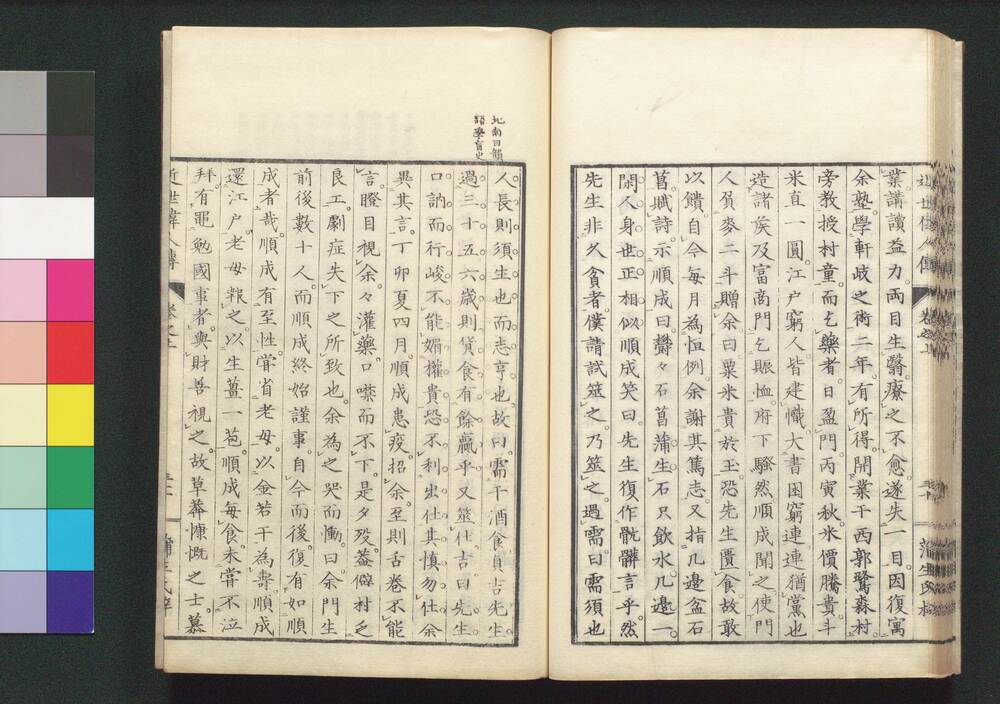 業講讀益力。兩目生翳療之不愈。遂失一目。因復寓
余塾。學軒岐之術二年。有所得。開業于西郭鷺森村。
旁教授村童。而乞藥者。日盈門。丙寅秋。米價騰貴。斗
米直一圓。江戶窮人。皆建幟。大書困窮連連猶黨也
造諸侯及富商門。乞賑恤。府下騷然。順成聞之。使門
人負麥二斗贈余曰。粟米貴於玉。恐先生匱食。故敢
以饋。自今每月為恒例。余謝其篤志。又指几邊盆石
菖賦詩示順成曰。欝々石菖蒲。生石只飲水。几邊一
閑人。身世正相似。順成笑曰。先生復作骯髒言乎。然
先生非久貧者。僕請試筮之。乃筮之。遇需。曰需須也
人長則須生也。而志亨也。故曰。需于酒食貞吉。先生
過三十五六歲。則貨食有餘贏乎。又筮仕吉。曰先生
口訥而行峻。不能媚權貴。恐不利出仕。其慎勿仕。余
異其言。丁卯夏四月。順成患疫。招余。至則舌卷不能
言。瞪目視余。々灌藥。口噤而不下。是夕歿。蓋僻村乏
良工。劇症失下之所致也。余為之哭而慟。曰余門生
前後數十人。而順成終始謹事。自今而後。復有如順
成者哉。順成有至性。嘗省老母。以金若干為壽。順成
還江戶。老母報之。以生薑一苞。順成每食。未嘗不泣
拜。有黽勉國事者。輿財善視之。故草莽慷慨之士。慕
近世偉人傳